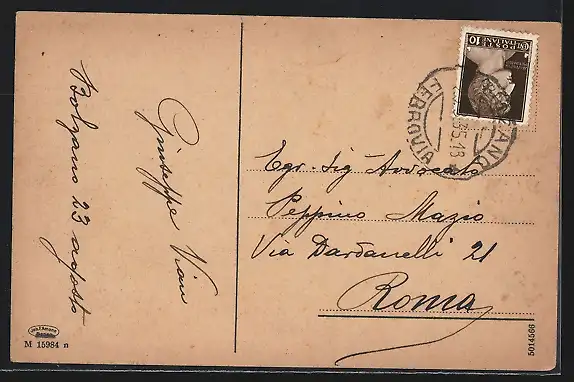 Bolzano 23 agosto
Giuseppe Viani
POSTE
ITALIANE
10
FERROVIA
35-13
Egr. Sig Avvocato
Peppino Mazio
Via Dardanelli 21
Roma
M 15984 n
5014566